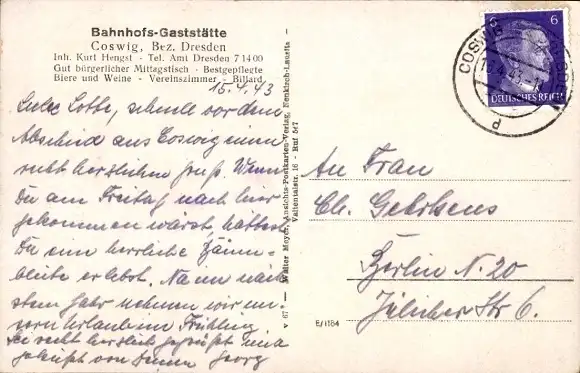 Bahnhofs-Gaststätte
Coswig, Bez. Dresden
Inh. Kurt Hengst - Tel. Amt Dresden 71400
Gut bürgerlicher Mittagstisch - Bestgepflegte
Biere und Weine - Vereinszimmer - Billard
15.4.43
Liebe Lotte, schnell vor dem
Abschied aus Coswig einen
recht herzlichen Gruß. Wenn
Du am Freitag nach hier
gekommen wärst, hättest
Du eine herrliche Bäum-
blüte erlebt. Na im näch-
sten Jahr nehmen wir un-
sern Urlaub im Frühling
Sei recht herzlich gegrüßt und
geküßt von Deinem Georg
v 67 — Walter Meyer, Ansichts-Postkarten-Verlag, Neukirch-Lausitz -
Valtentalstr. 16 - Ruf 547
COSWIG
6
DEUTSCHES REICH
d
An Frau
Ch. Gehrkens
Berlin N. 20
Jülicher Str 6.
E/1184